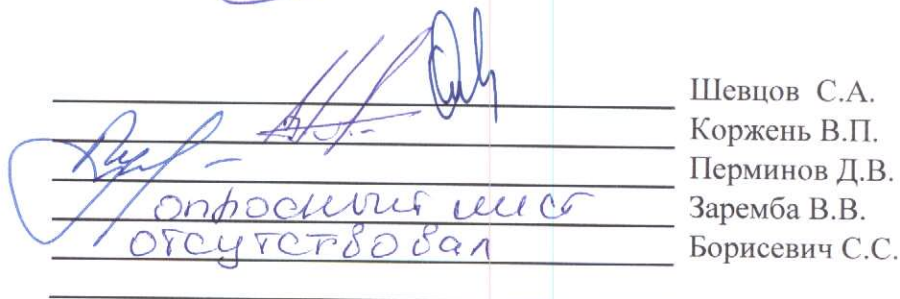 Шевцов С.А.
Коржень В.П.
Перминов Д.В.
опросный лист Заремба В.В.
отсутствовал Борисевич С.С.